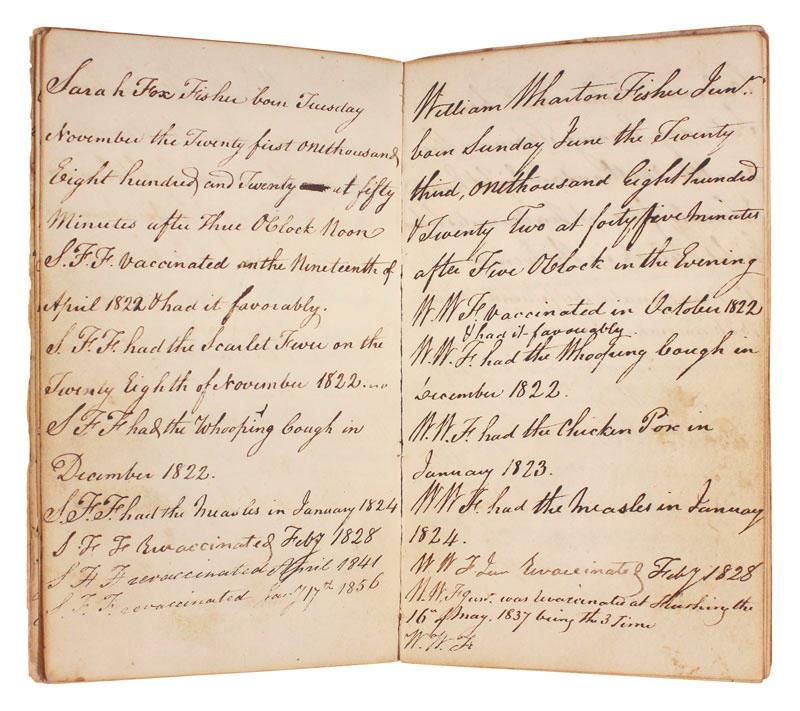 Sarah Fox Fisher born Tuesday
November the Twenty first onethousand
Eight hundred and Twenty at fifty
Minutes after Three OClock Noon
S.F.F. vaccinated on the Nineteenth of
April 1822 & had it favorably.
S. F. F. had the Scarlet Fever on the
Twenty Eighth of November 1822.
S F F had the Whooping Cough in
December 1822.
S.F.F. had the Measles in January 1824
S F F Revaccinated Feby 1828
S F F revaccinated April 1841
S. F. F. revaccinated Jany 17th 1856
William Wharton Fisher Junr.
born Sunday June the Twenty
third, onethousand Eight hundred
& Twenty Two at forty five minutes
after Five OClock in the Evening
W.W.F. vaccinated in October 1822
& had it favourably.
W.W.F. had the Whooping Cough in
December 1822.
W.W.F. had the Chicken Pox in
January 1823.
W.W.F. had the Measles in January
1824.
W W F Jun Revaccinated Feby 1828
W.W.F Junr. was revaccinated at Flushing the
16th of May. 1837 being the 3 Time
W. W. F.